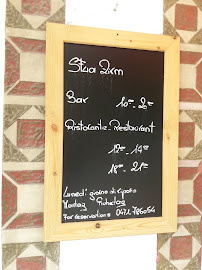 Stua Zirm
Bar 10⁰⁰ - 20⁰⁰
Ristorante - Restaurant
12⁰⁰ - 14⁰⁰
18⁰⁰ - 21⁰⁰
Lunedì giorno di riposo
Montag Ruhetag
For reservations 0471 786054